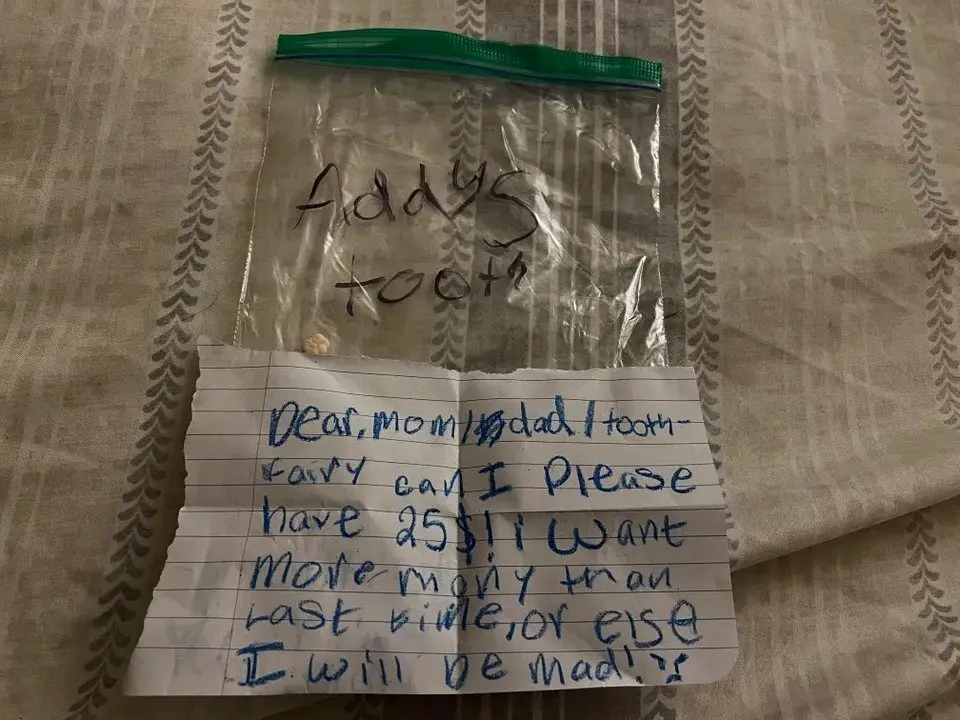 Addys
tooth
Dear, mom/dad/tooth-
fairy can I Please
have 25$! i want
more mony than
Last time, or else
I will be mad!